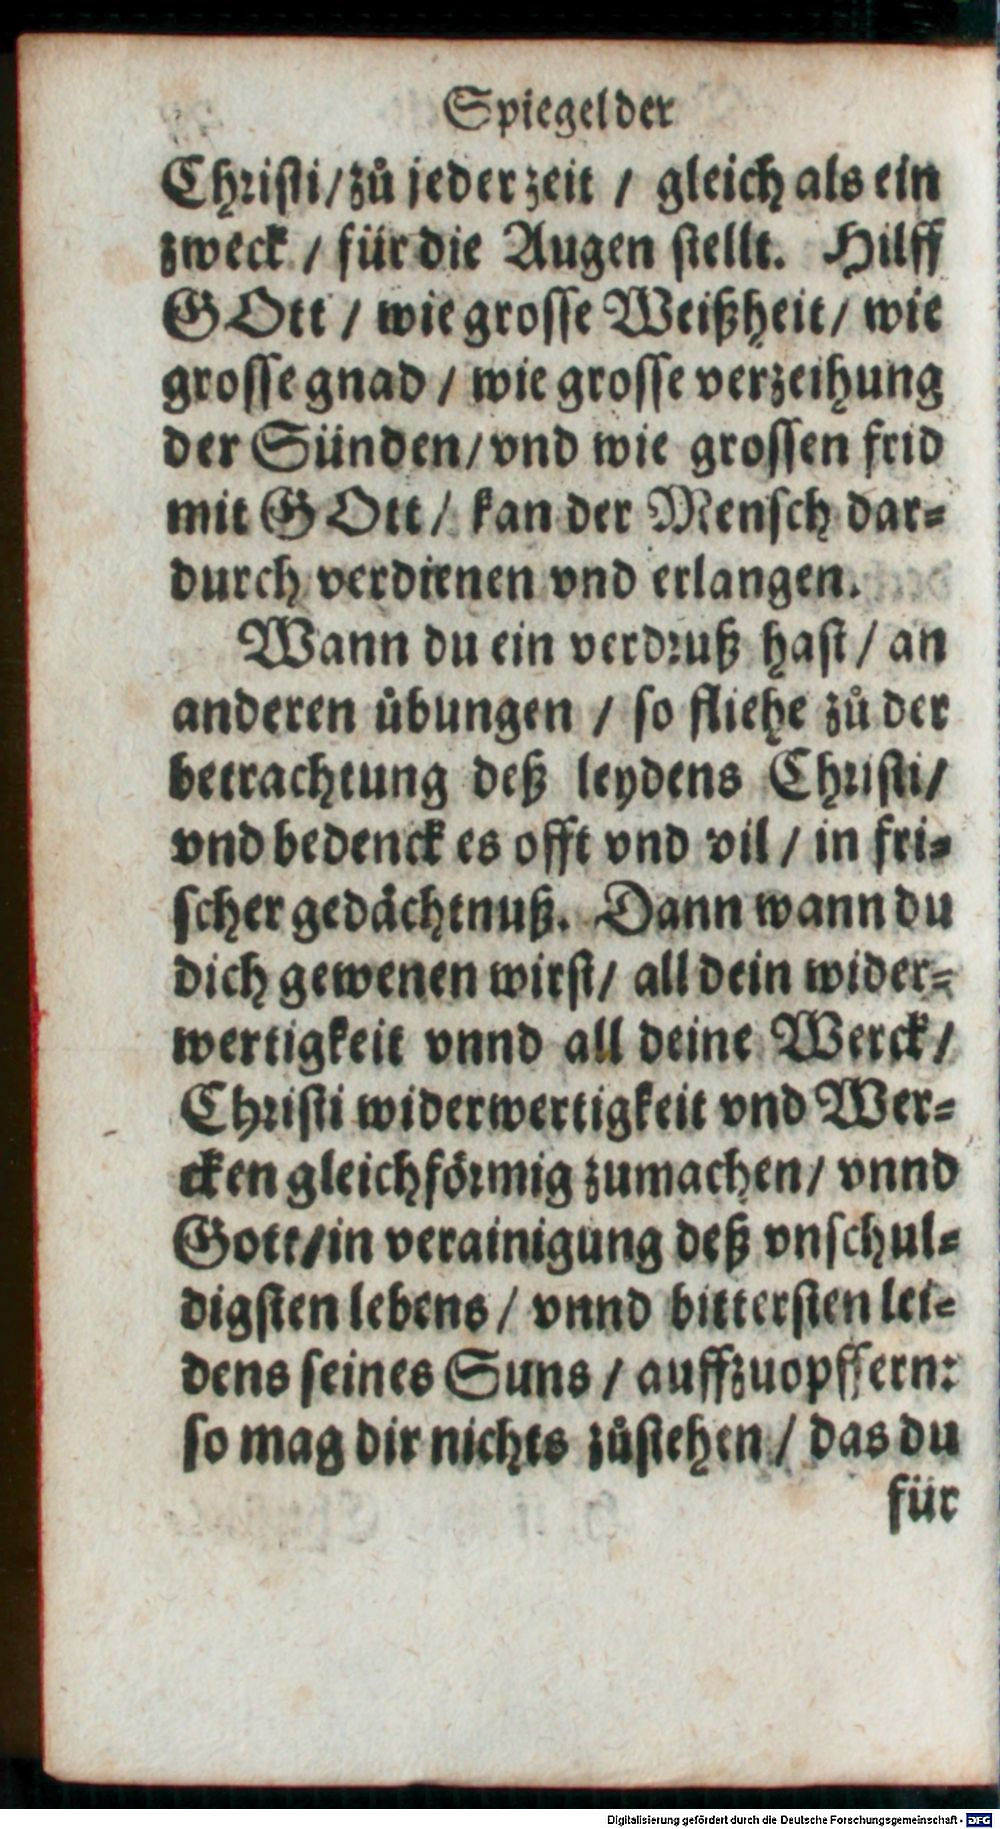 Spiegel der
Christi/ zů jeder zeit / gleich als ein
zweck / für die Augen stellt. Hilff
GOtt / wie grosse Weißheit/ wie
grosse gnad / wie grosse verzeihung
der Sünden/ vnd wie grossen frid
mit GOtt/ kan der Mensch dar=
durch verdienen vnd erlangen.
Wann du ein verdruß hast / an
anderen übungen / so fliehe zů der
betrachtung deß leydens Christi/
vnd bedenck es offt vnd vil / in fri=
scher gedächtnuß. Dann wann du
dich gewenen wirst/ all dein wider=
wertigkeit vnnd all deine Werck/
Christi widerwertigkeit vnd Wer=
cken gleichförmig zumachen/ vnnd
Gott/ in verainigung deß vnschul=
digsten lebens / vnnd bittersten lei=
dens seines Suns / auffzuopffern:
so mag dir nichts zůstehen / das du
für
Digitalisierung gefördert durch die Deutsche Forschungsgemeinschaft - DFG